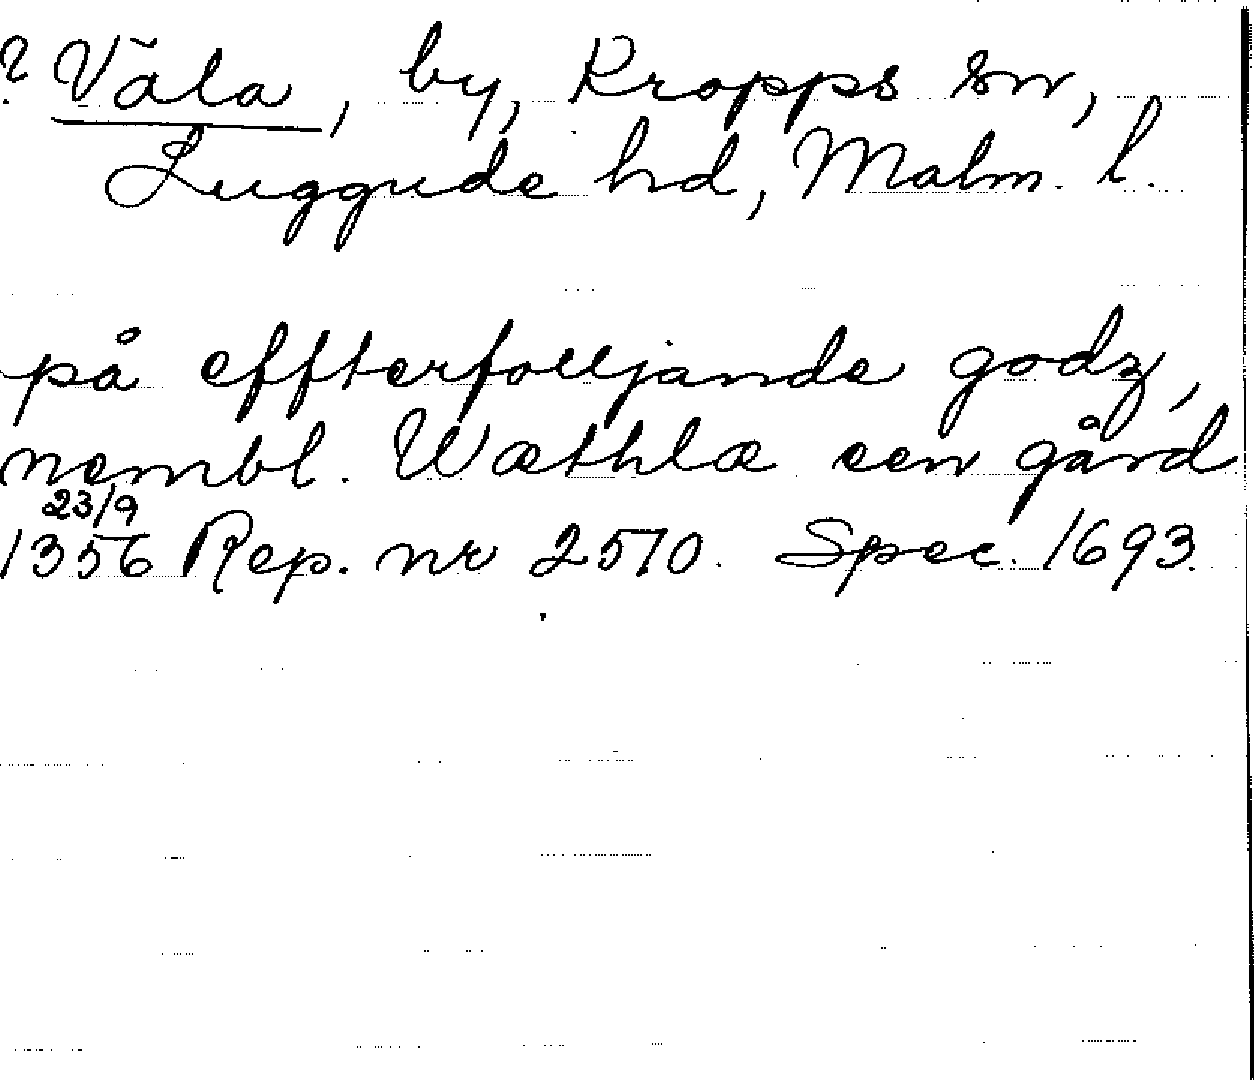 ? Väla, by, Kropps sn,
Luggude hd, Malm. l.
på effterfolljande godz,
nembl. Wæthlæ een gård
23/9
1356 Rep. nr 2570. Spec. 1693.